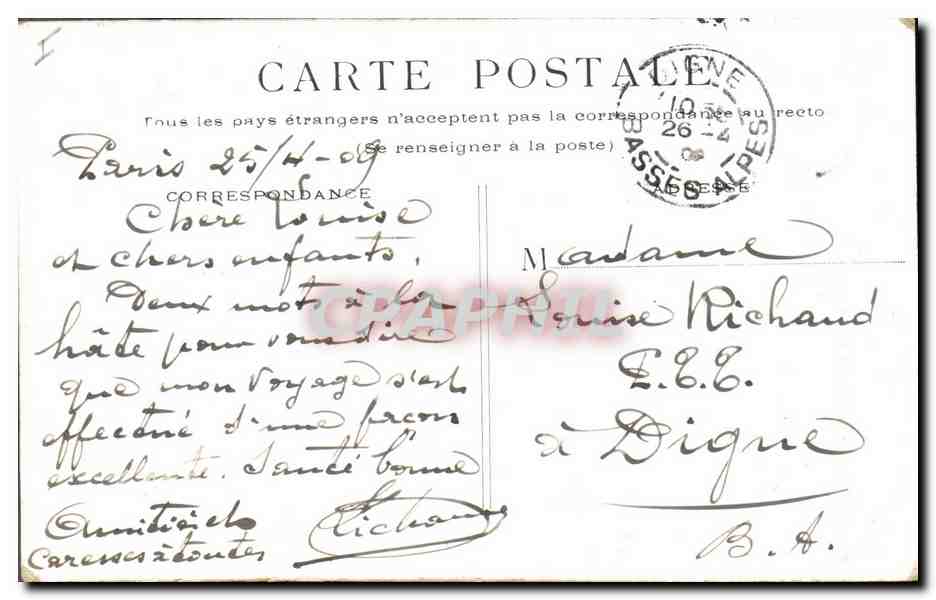 I
CARTE POSTALE
Tous les pays étrangers n'acceptent pas la correspondance au recto
(Se renseigner à la poste)
DIGNE
10
26 - 4
09
BASSES ALPES
Paris 25/4-09
CORRESPONDANCE
Chère Louise
et chers enfants.
Deux mots à la
hâte pour vous dire
que mon voyage s'est
effectué d'une façon
excellente. Santé bonne
Amitiés et
caresses à toutes
Richaud
ADRESSE
Madame
Louise Richaud
P.T.T.
à Digne
B. A.
CPAPHIL